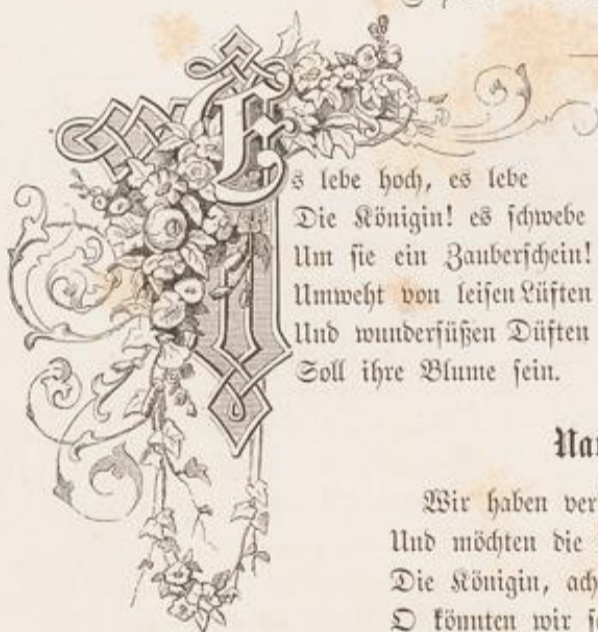 Es lebe hoch, es lebe
Die Königin! es schwebe
Um sie ein Zauberschein!
Umweht von leisen Lüften
Und wundersüßen Düften
Soll ihre Blume sein.
Wir haben ver
Und möchten die
Die Königin, ach
O könnten wir